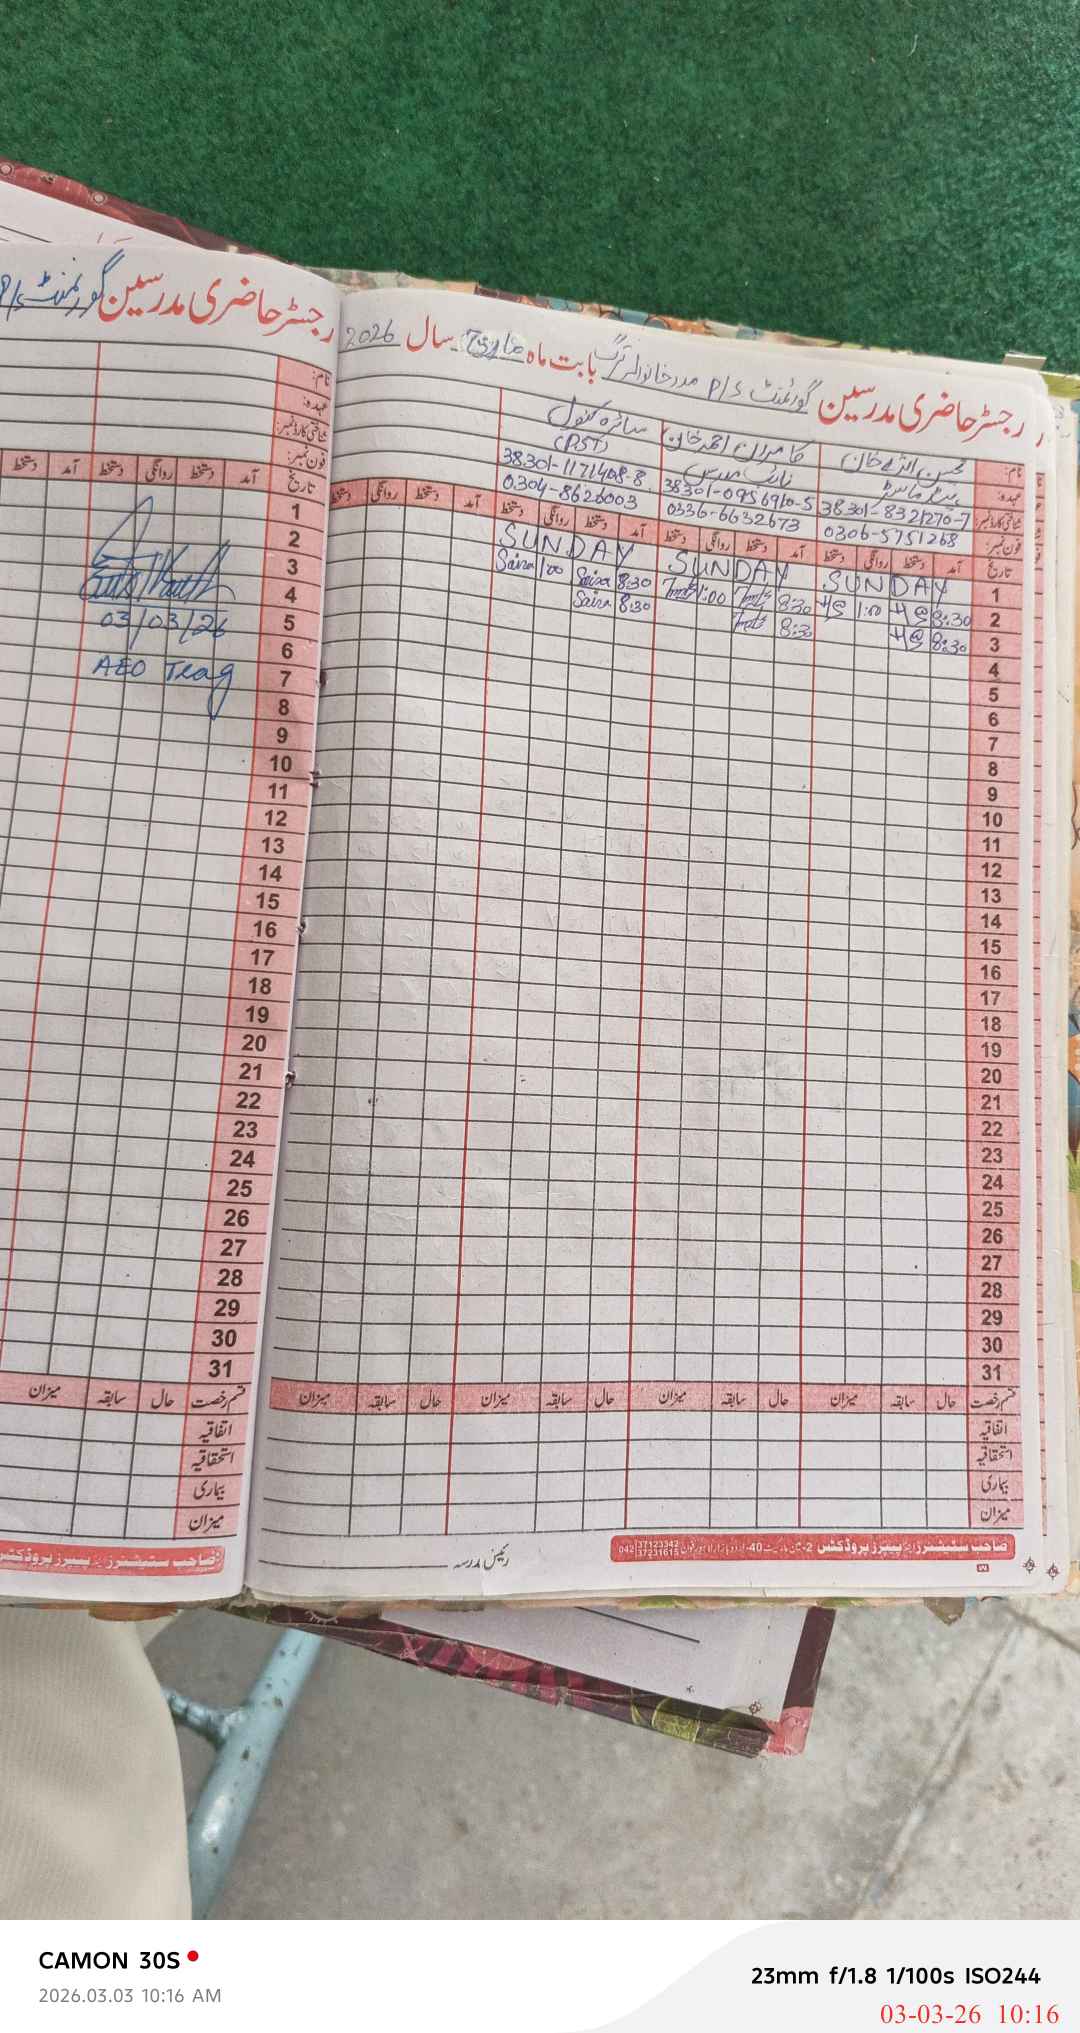 رجسٹر حاضری مدرسین گورنمنٹ P/S
نام:
عہدہ:
شناختی کارڈ نمبر:
فون نمبر:
تاریخ آمد دستخط روانگی دستخط آمد دستخط
1
2
3
4
5
6
7
8
9
10
11
12
13
14
15
16
17
18
19
20
21
22
23
24
25
26
27
28
29
30
31
03/03/26
AEO Trag
قسم رخصت حال سابقہ میزان
اتفاقیہ
استحقاقیہ
بیماری
میزان
صاحب سٹیشنرز اینڈ پیپرز پروڈکٹس
رجسٹر حاضری مدرسین گورنمنٹ P/S بابت ماہ مارچ سال 2026
نام: خان کامران احمد خان سائرہ کنول
عہدہ: ہیڈ ماسٹر نائب مدرس (PST)
شناختی کارڈ نمبر: 38301-8321270-7 38301-0956910-5 38301-1171408-8
فون نمبر: 0306-5751268 0336-6632673 0304-8626003
تاریخ آمد دستخط روانگی دستخط آمد دستخط روانگی دستخط آمد دستخط روانگی دستخط آمد دستخط روانگی دستخط
1 SUNDAY SUNDAY SUNDAY
2 8:30 1:00 8:30 1:00 8:30 Saira 1:00 Saira
3 8:30 8:30 8:30 Saira
4
5
6
7
8
9
10
11
12
13
14
15
16
17
18
19
20
21
22
23
24
25
26
27
28
29
30
31
قسم رخصت حال سابقہ میزان حال سابقہ میزان حال سابقہ میزان حال سابقہ میزان
اتفاقیہ
استحقاقیہ
بیماری
میزان
رئیس مدرسہ
صاحب سٹیشنرز اینڈ پیپرز پروڈکٹس 042 37123342 37231615
CAMON 30S
2026.03.03 10:16 AM
23mm f/1.8 1/100s ISO244
03-03-26 10:16